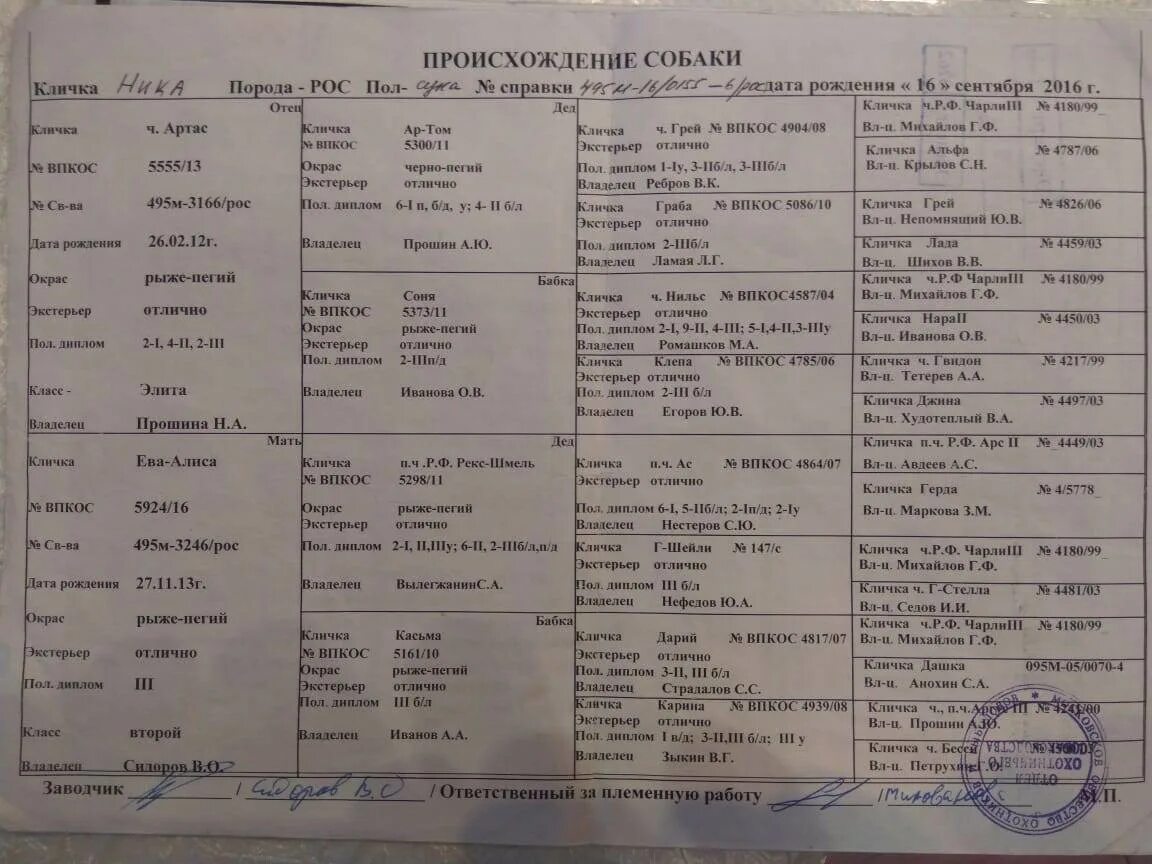 ПРОИСХОЖДЕНИЕ СОБАКИ
Кличка НИКА Порода - РОС Пол- сука № справки 495м-16/0155-6/рос дата рождения « 16 » сентября 2016 г.
Отец
Кличка ч. Артас
№ ВПКОС 5555/13
№ Св-ва 495м-3166/рос
Дата рождения 26.02.12г.
Окрас рыже-пегий
Экстерьер отлично
Пол. диплом 2-I, 4-II, 2-III
Класс - Элита
Владелец Прошина Н.А.
Мать
Кличка Ева-Алиса
№ ВПКОС 5924/16
№ Св-ва 495м-3246/рос
Дата рождения 27.11.13г.
Окрас рыже-пегий
Экстерьер отлично
Пол. диплом III
Класс второй
Владелец Сидоров В.О.
Дед
Кличка Ар-Том
№ ВПКОС 5300/11
Окрас черно-пегий
Экстерьер отлично
Пол. диплом 6-I п, б/д, у; 4- II б/л
Владелец Прошин А.Ю.
Бабка
Кличка Соня
№ ВПКОС 5373/11
Окрас рыже-пегий
Экстерьер отлично
Пол. диплом 2-IIIп/д
Владелец Иванова О.В.
Дед
Кличка п.ч .Р.Ф. Рекс-Шмель
№ ВПКОС 5298/11
Окрас рыже-пегий
Экстерьер отлично
Пол. диплом 2-I, II,IIIу; 6-II, 2-IIIб/л,п/д
Владелец ВылегжанинС.А.
Бабка
Кличка Касьма
№ ВПКОС 5161/10
Окрас рыже-пегий
Экстерьер отлично
Пол. диплом III б/л
Владелец Иванов А.А.
Кличка ч. Грей № ВПКОС 4904/08
Экстерьер отлично
Пол. диплом 1-Iу, 3-IIб/л, 3-IIIб/л
Владелец Ребров В.К.
Кличка Граба № ВПКОС 5086/10
Экстерьер отлично
Пол. диплом 2-IIIб/л
Владелец Ламая Л.Г.
Кличка ч. Нильс № ВПКОС4587/04
Экстерьер отлично
Пол. диплом 2-I, 9-II, 4-III; 5-I,4-II,3-IIIу
Владелец Ромашков М.А.
Кличка Клепа № ВПКОС 4785/06
Экстерьер отлично
Пол. диплом 2-III б/л
Владелец Егоров Ю.В.
Кличка п.ч. Ас № ВПКОС 4864/07
Экстерьер отлично
Пол. диплом 6-I, 5-IIб/л; 2-Iп/д; 2-Iу
Владелец Нестеров С.Ю.
Кличка Г-Шейли № 147/с
Экстерьер отлично
Пол. диплом III б/л
Владелец Нефедов Ю.А.
Кличка Дарий № ВПКОС 4817/07
Экстерьер отлично
Пол. диплом 3-II, III б/л
Владелец Страдалов С.С.
Кличка Карина № ВПКОС 4939/08
Экстерьер отлично
Пол. диплом I в/д; 3-II,III б/л; III у
Владелец Зыкин В.Г.
Кличка ч.Р.Ф. ЧарлиIII № 4180/99
Вл-ц. Михайлов Г.Ф.
Кличка Альфа № 4787/06
Вл-ц. Крылов С.Н.
Кличка Грей № 4826/06
Вл-ц. Непомнящий Ю.В.
Кличка Лада № 4459/03
Вл-ц. Шихов В.В.
Кличка ч.Р.Ф ЧарлиIII № 4180/99
Вл-ц. Михайлов Г.Ф.
Кличка НараII № 4450/03
Вл-ц. Иванова О.В.
Кличка ч. Гвидон № 4217/99
Вл-ц. Тетерев А.А.
Кличка Джина № 4497/03
Вл-ц. Худотеплый В.А.
Кличка п.ч. Р.Ф. Арс II № 4449/03
Вл-ц. Авдеев А.С.
Кличка Герда № 4/5778
Вл-ц. Маркова З.М.
Кличка ч.Р.Ф. ЧарлиIII № 4180/99
Вл-ц. Михайлов Г.Ф.
Кличка ч. Г-Стелла № 4481/03
Вл-ц. Седов И.И.
Кличка ч.Р.Ф. ЧарлиIII № 4180/99
Вл-ц. Михайлов Г.Ф.
Кличка Дашка 095М-05/0070-4
Вл-ц. Анохин С.А.
Кличка ч., п.ч.Арсъ III № 4241/00
Вл-ц. Прошин А.Ю.
Кличка ч. Бесси
Вл-ц. Петрухин Г.О.
Заводчик / Сидоров В.О / Ответственный за племенную работу / М.П.
ОТДЕЛ ОХОТНИЧЬЕГО